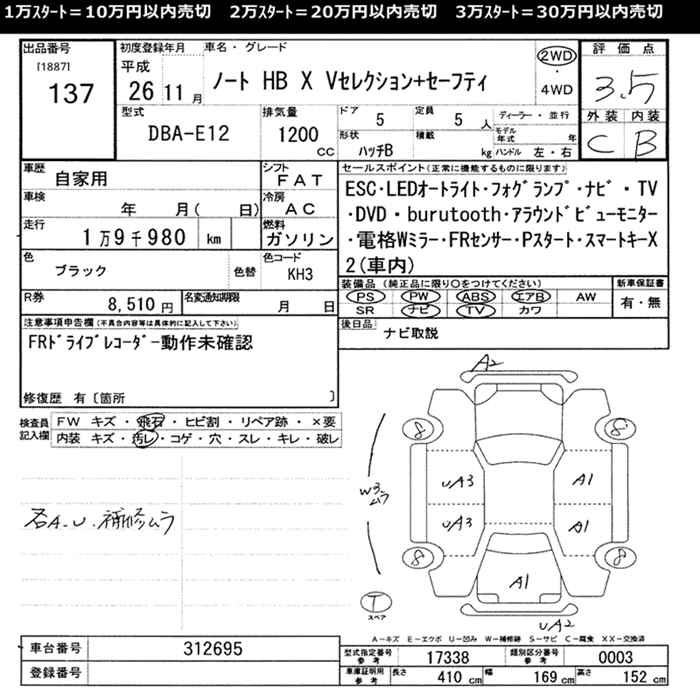 1万ｽﾀｰﾄ＝10万円以内売切　2万ｽﾀｰﾄ＝20万円以内売切　3万ｽﾀｰﾄ＝30万円以内売切
出品番号
[1887]
137
初度登録年月
平成
26 11 月
車名・グレード
ノート HB X Vセレクション+セーフティ
2WD
・
4WD
評価点
3.5
外装 内装
C B
型式
DBA-E12
排気量
1200
cc
ドア
5
定員
5 人
ディーラー・並行
形状
ハッチB
積載
kg
モデル年式
年
ハンドル 左・右
車歴
自家用
シフト
FAT
車検
年 月( 日)
冷房
AC
走行
1万9千980 km
燃料
ガソリン
色
ブラック
色替
色コード
KH3
R券
8,510 円
名変通知期限
月 日
セールスポイント(正常に機能するものに限ります)
ESC・LEDオートライト・フォグランプ・ナビ・TV
・DVD・burutooth・アラウンドビューモニター
・電格Wミラー・FRセンサー・Pスタート・スマートキーX
2(車内)
装備品(純正品に限り○をつけてください)
PS PW ABS エアB AW
SR ナビ TV カワ
新車保証書
有・無
後日品
ナビ取説
注意事項申告欄(不具合内容等は具体的に記入して下さい)
FRドライブレコーダー動作未確認
修復歴 有〔箇所 〕
検査員
記入欄
FW キズ・飛石・ヒビ割・リペア跡・×要
内装 キズ・汚レ・コゲ・穴・スレ・キレ・破レ
各A.U.補修ムラ
A2
8
8
W3
ムラ
UA3
A1
UA3
A1
8
8
A1
T
スペア
UA2
A－キズ E－エクボ U－凹み W－補修跡 S－サビ C－腐食 XX－交換済
車台番号
312695
登録番号
型式指定番号
参考
17338
類別区分番号
参考
0003
車庫証明用
参考
長さ
410 cm
幅
169 cm
高さ
152 cm